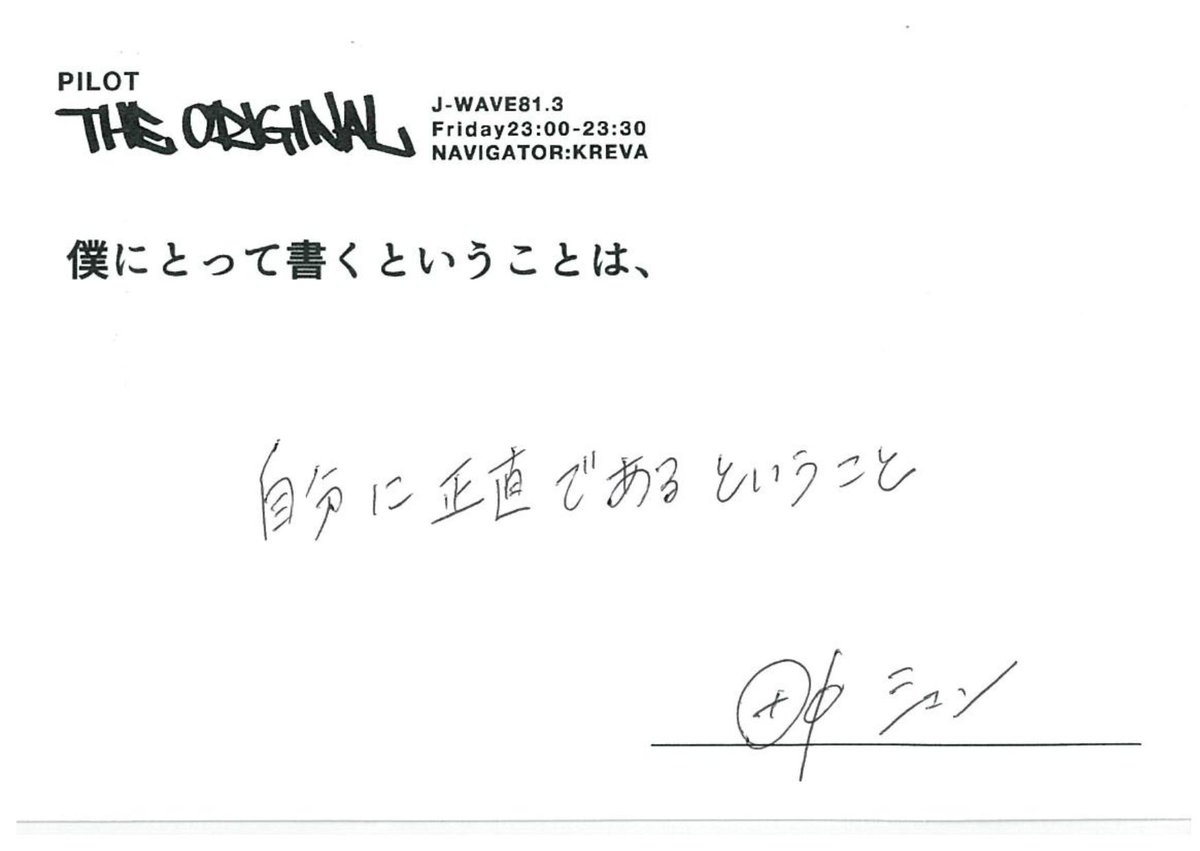 PILOT
THE ORIGINAL
J-WAVE81.3
Friday23:00-23:30
NAVIGATOR:KREVA
僕にとって書くということは、
自分に正直であるということ
田中シュン